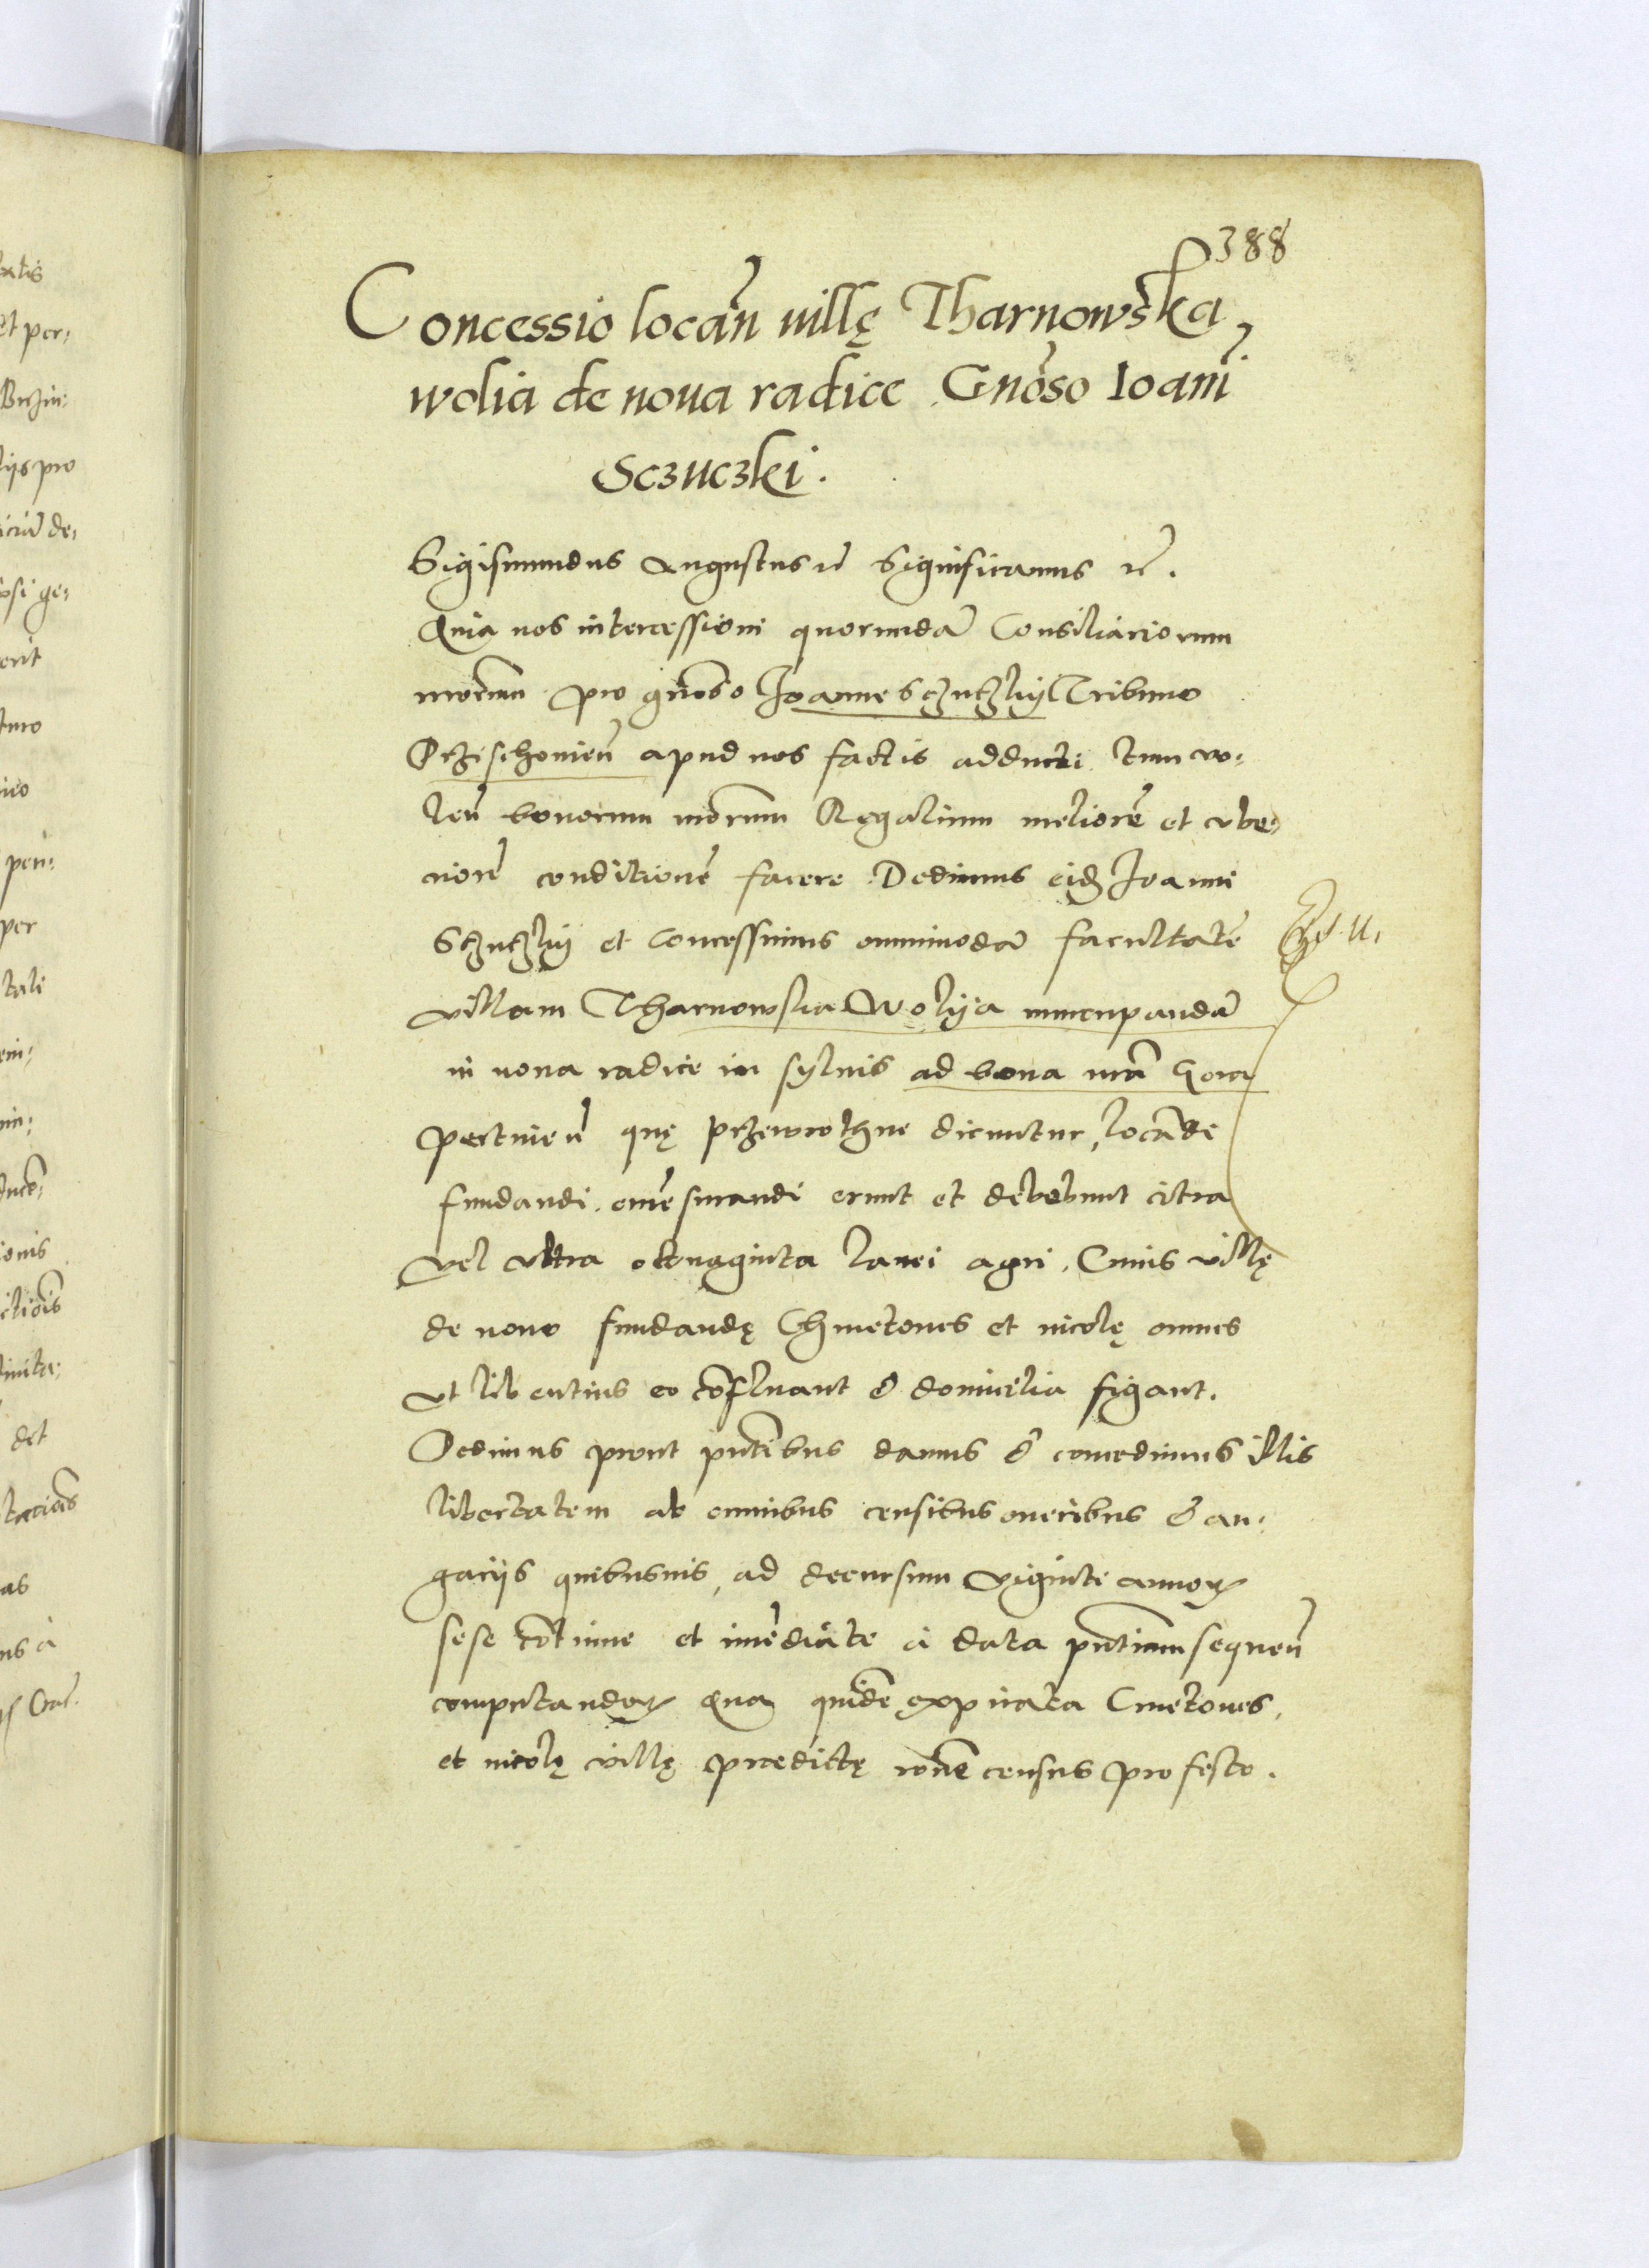 388
Concessio locań villę Tharnowska
wolia de noua radice Gnoso Ioani
Sczuczki.
Sigismundus Augustus rc̃ Significamus rc̃.
Quia nos intercessioni quorundã Consiliariorum
nrorum pro gnoso Joanne Sczuczky Tribuno
apud nos factis adducti tum vo-
leñ bonorum nrorum Regalium meliorẽ et vbe-
riorẽ conditionẽ facere Dedimus eidẽ Joanni
Sczuczky et Concessimus omnimodã facultatẽ
villam Tharnowska Wolya nuncupandã
in noua radice in syluis ad bona nrã Gora
pertineñ quę przewrothne dicuntur, locãde
fundandi. emẽsurandi erunt et debebunt citra
vel vltra octuaginta lanei agri. Cuius villę
de nouo fundandę Chmetones et incolę omnes
vt libentius eo cõfluant & domicilia figant.
Dedimus prout pntibus damus & concedimus illis
libertatem ab omnibus censibus oneribus & an-
garijs quibusuis, ad decursum viginti annor
sese cõtinue et imẽdiate a data pntium sequeñ
computandor Qua quidẽ expirata Cmetones,
et incolę villę predictę rõne census pro festo.